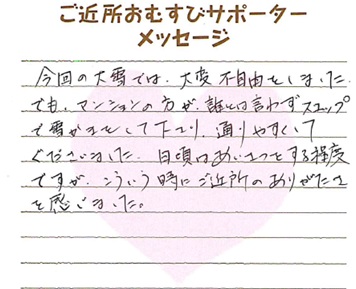 ご近所おむすびサポーター
メッセージ
今回の大雪では、大変不自由をしました。
でも、マンションの方が、誰とは言わずスコップ
で雪かきをして下さり、通りやすくして
くださいました。日頃はあいさつをする程度
ですが、こういう時にご近所のありがたさ
を感じました。